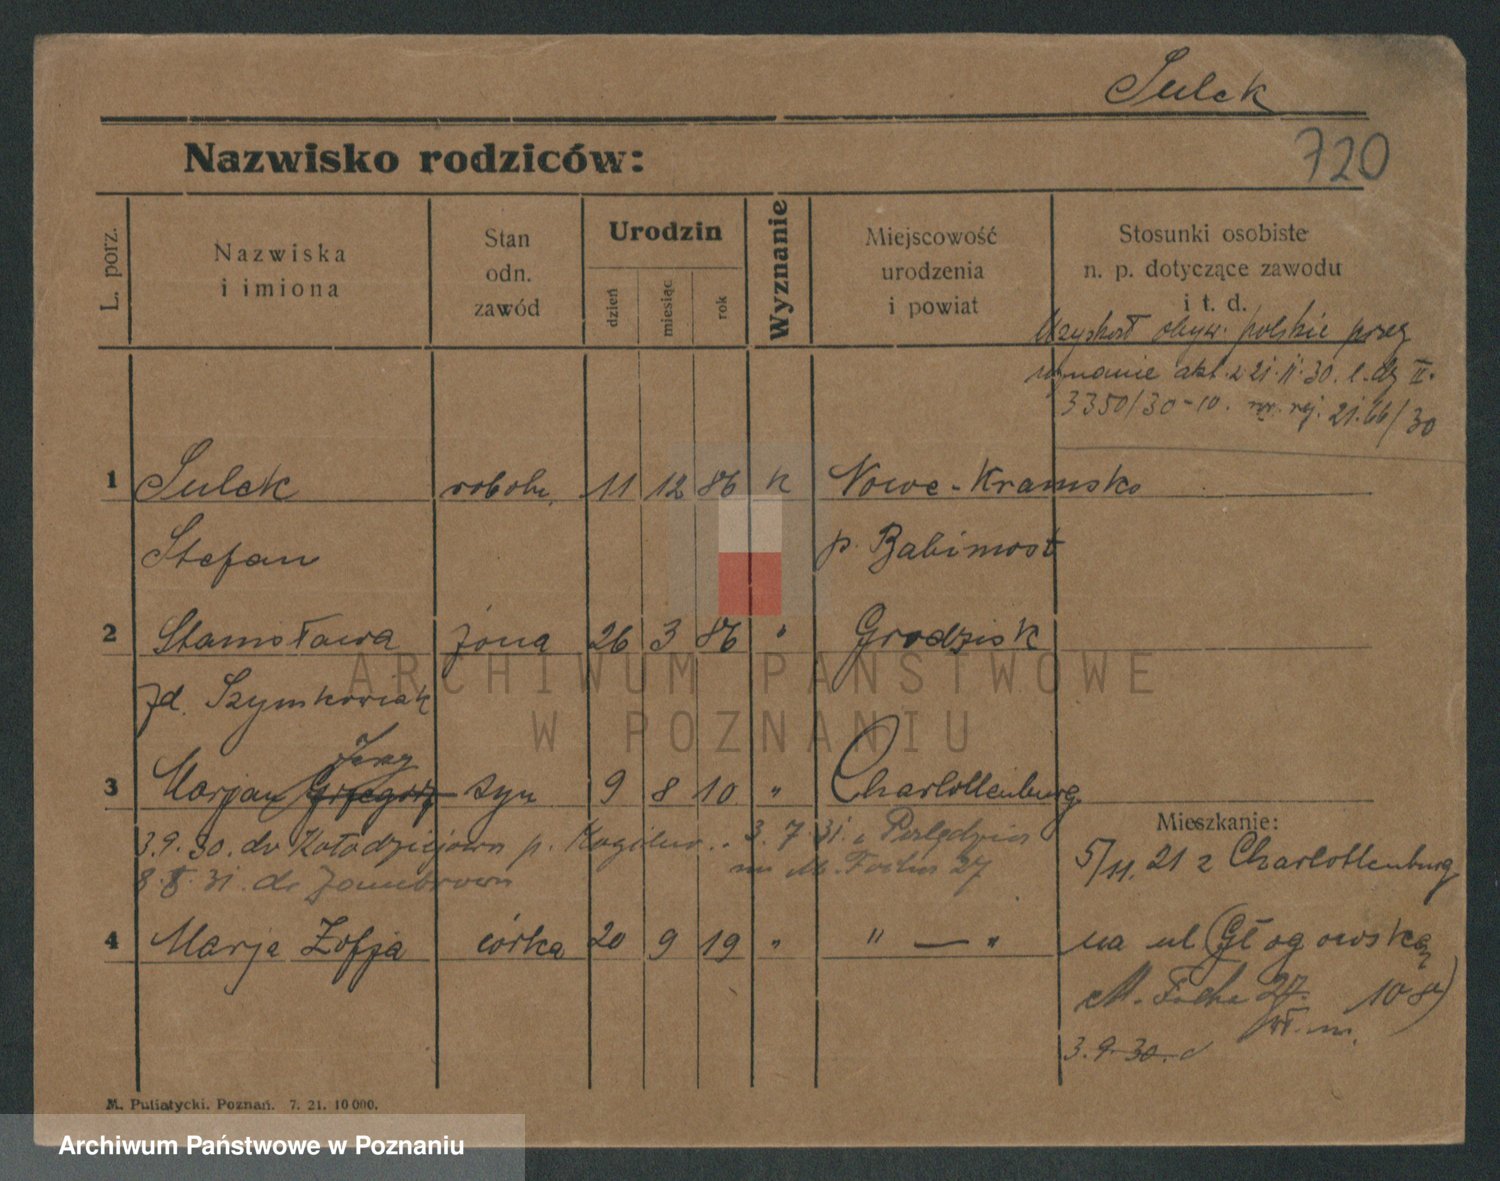 Sulek
720
Nazwisko rodziców:
L. porz.
Nazwiska
i imiona
Stan
odn.
zawód
Urodzin
dzień
miesiąc
rok
Wyznanie
Miejscowość
urodzenia
i powiat
Stosunki osobiste
n. p. dotyczące zawodu
i t. d.
Uzyskał obyw. polskie przez
uznanie akt. z 21.11.30. l. dz II.
3350/30-10. nr. rej. 2166/30
1 Sulek robotn. 11 12 86 k Nowe-Kramsko
Stefan p. Babimost
2 Stanisława żona 26 3 86 " Grodzisk
zd. Szymkowiak
Jerzy
3 Marjan Grzegorz syn 9 8 10 " Charlottenburg
3.9.30. do Kołodziejewa p. Mogilno 3.7.31. z
8.X.31. do M. Focha 27
Mieszkanie:
5/11.21 z Charlottenburg
4 Marja Zofja córka 20 9 19 " " — "
na ul Głogowską
M. Focha 27. 108)
3.9.30.
M. Puliatycki. Poznań. 7. 21. 10 000.
ARCHIWUM PAŃSTWOWE
W POZNANIU
Archiwum Państwowe w Poznaniu